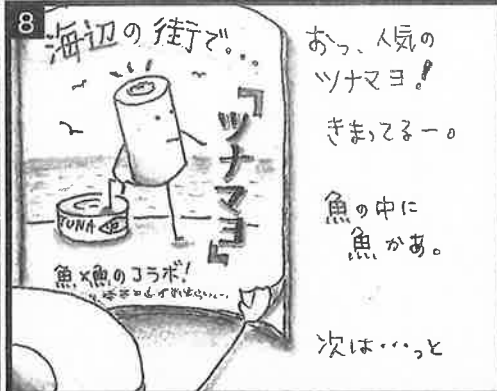 8
海辺の街で。..
『ツナマヨ』
TUNA
魚×魚のコラボ!
おっ、人気の
ツナマヨ!
きまってるー。
魚の中に
魚かあ。
次は・・・っと